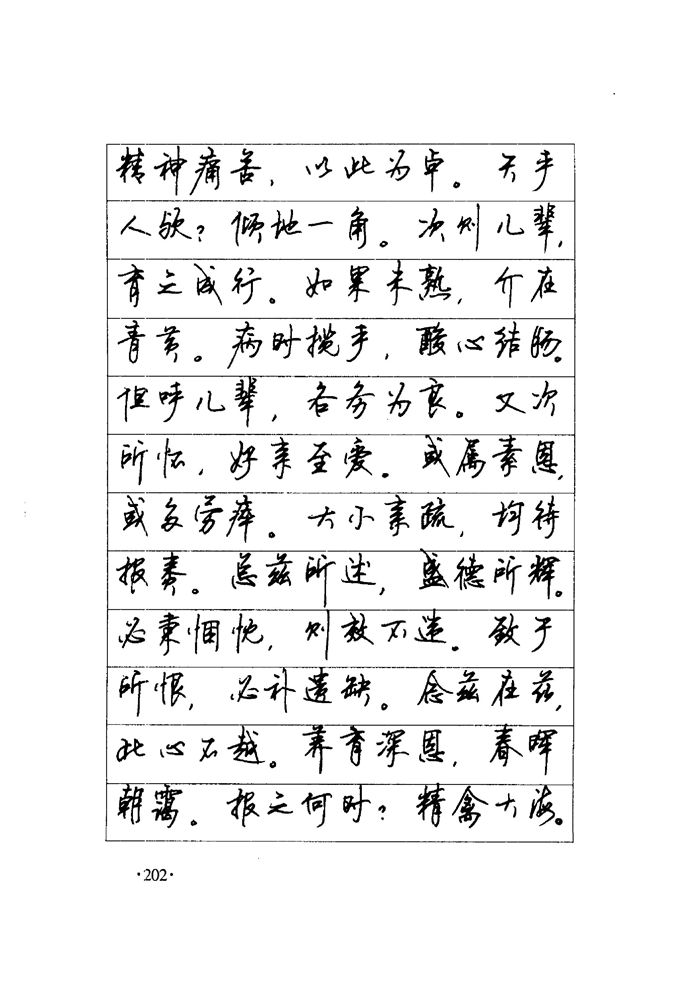 精神痛苦，以此为卓。天乎
人欤？倾地一角。次则儿辈，
育之成行。如果未熟，介在
青黄。病时揽手，酸心结肠。
但呼儿辈，各务为良。又次
所怀，好亲至爱。或属素恩，
或多劳瘁。大小亲疏，均待
报赉。总兹所述，盛德所辉。
必秉悃忱，则效不违。致于
所恨，必补遗缺。念兹在兹，
此心不越。养育深恩，春晖
朝霭。报之何时？精禽大海。
·202·